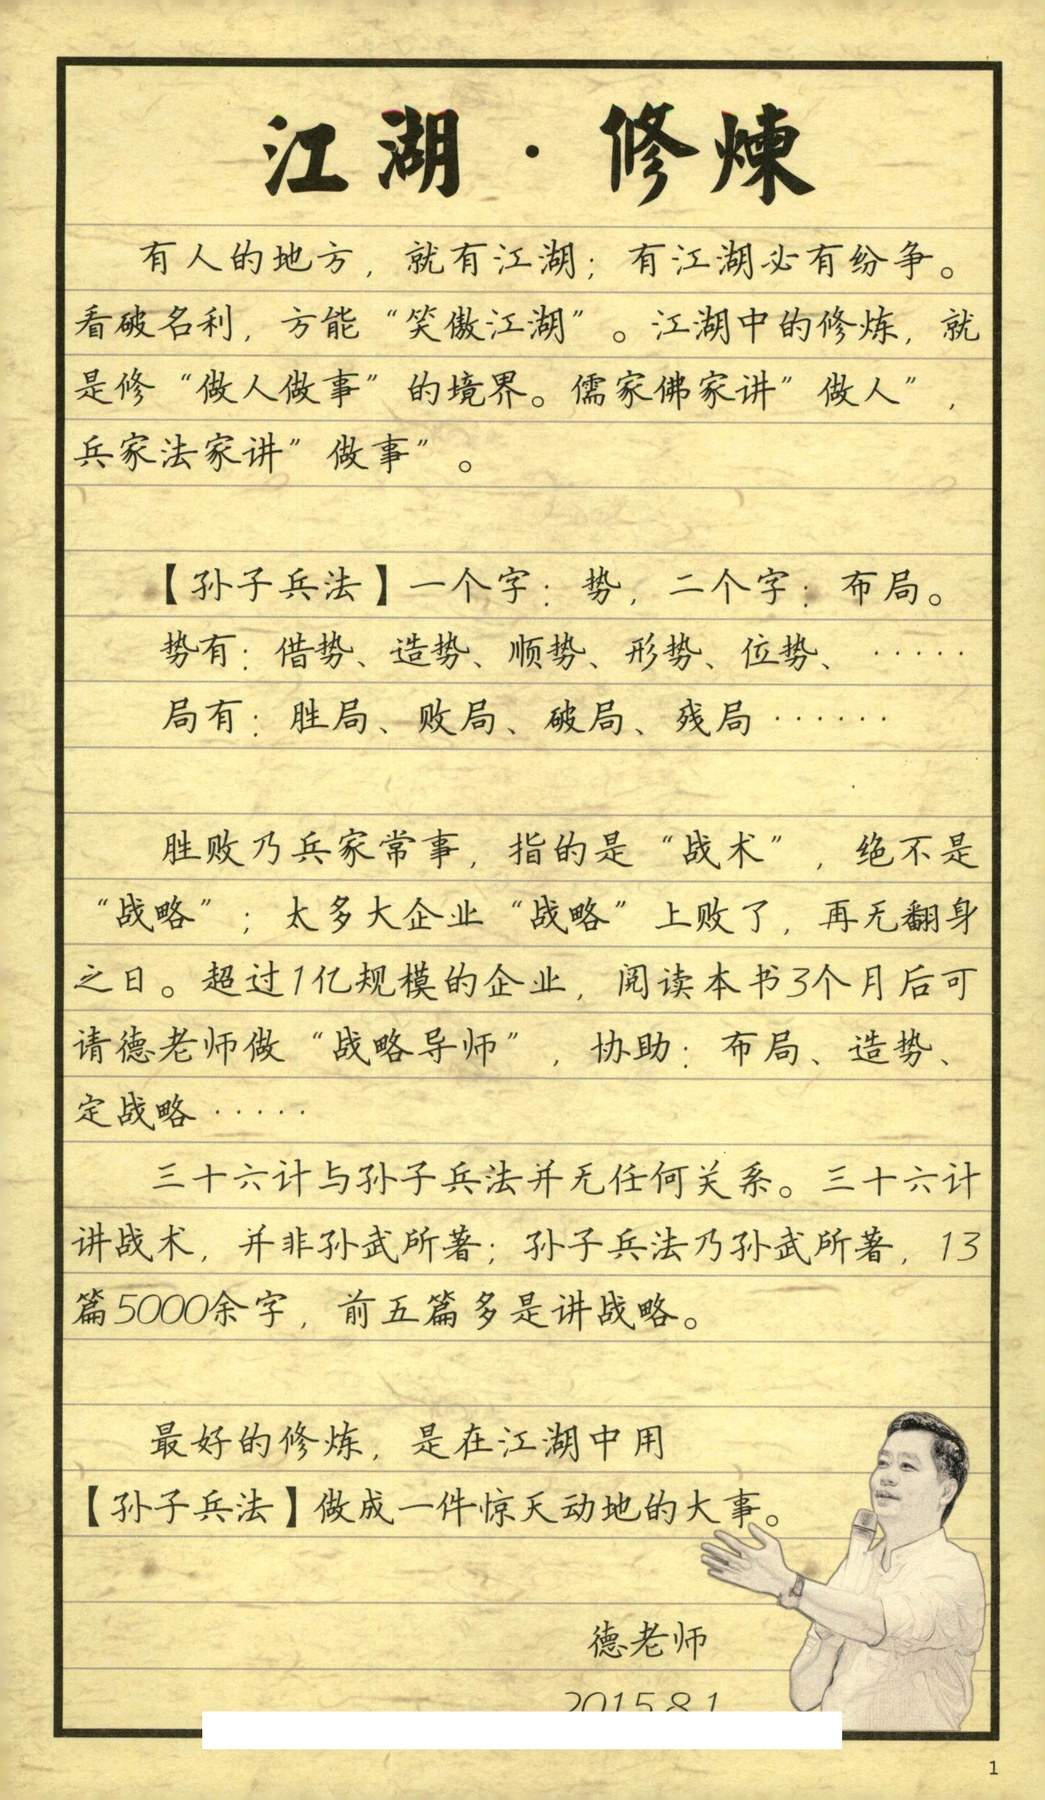 江湖·修煉
有人的地方，就有江湖；有江湖必有纷争。
看破名利，方能“笑傲江湖”。江湖中的修炼，就
是修“做人做事”的境界。儒家佛家讲”做人”，
兵家法家讲”做事”。
【孙子兵法】一个字：势，二个字：布局。
势有：借势、造势、顺势、形势、位势、·····
局有：胜局、败局、破局、残局······
胜败乃兵家常事，指的是“战术”，绝不是
“战略”；太多大企业“战略”上败了，再无翻身
之日。超过1亿规模的企业，阅读本书3个月后可
请德老师做“战略导师”，协助：布局、造势、
定战略·····
三十六计与孙子兵法并无任何关系。三十六计
讲战术，并非孙武所著；孙子兵法乃孙武所著，13
篇5000余字，前五篇多是讲战略。
最好的修炼，是在江湖中用
【孙子兵法】做成一件惊天动地的大事。
德老师
2015.8.1
1